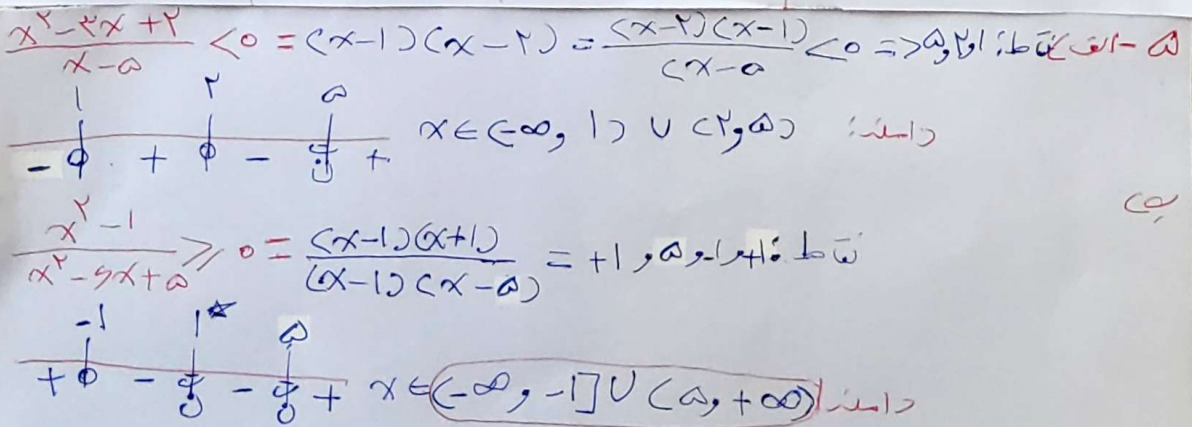 ۵-الف) نقاط: ۱و۲و۵ <= (x-۲)(x-۱)/(x-۵) <۰ = (x-۱)(x-۲) = (x^۲-۳x+۲)/(x-۵) <۰
۱ ۲ ۵
- + - + x∈(-∞,۱) ∪ (۲,۵) دامنه:
ب)
(x^۲-۱)/(x^۲-۶x+۵) ≥ ۰ = (x-۱)(x+۱)/(x-۱)(x-۵) = +۱ و ۵ و -۱ و +۱ نقاط:
-۱ ۱* ۵
+ - - + x∈(-∞,-۱] ∪ (۵,+∞) دامنه